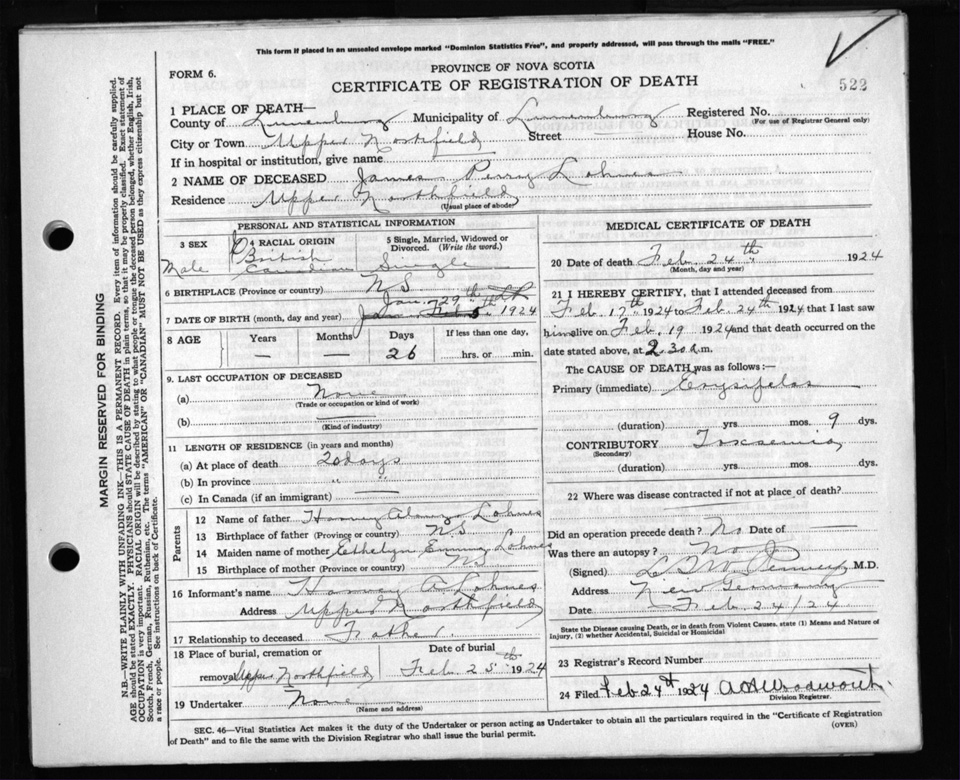 This form if placed in an unsealed envelope marked "Dominion Statistics Free", and properly addressed, will pass through the mails "FREE."
FORM 6.
PROVINCE OF NOVA SCOTIA
CERTIFICATE OF REGISTRATION OF DEATH
522
1 PLACE OF DEATH—
County of Lunenburg Municipality of Lunenburg Registered No.
(For use of Registrar General only)
City or Town Upper Northfield Street House No.
If in hospital or institution, give name
2 NAME OF DECEASED James Perry Lohnes
Residence Upper Northfield
(Usual place of abode)
PERSONAL AND STATISTICAL INFORMATION
3 SEX 4 RACIAL ORIGIN 5 Single, Married, Widowed or Divorced. (Write the word.)
Male British Canadian Single
6 BIRTHPLACE (Province or country) N.S.
Jan. 29th
7 DATE OF BIRTH (month, day and year) 1924
8 AGE Years Months Days If less than one day,
— — 26 hrs. or min.
9. LAST OCCUPATION OF DECEASED
(a) None
(Trade or occupation or kind of work)
(b)
(Kind of industry)
11 LENGTH OF RESIDENCE (in years and months)
(a) At place of death 20 days
(b) In province " "
(c) In Canada (if an immigrant) —
Parents
12 Name of father Harvey Alonzo Lohnes
13 Birthplace of father (Province or country) N.S
14 Maiden name of mother Ethelyn Emma Lohnes
15 Birthplace of mother (Province or country) N.S
16 Informant's name Harvey A Lohnes
Address Upper Northfield
17 Relationship to deceased Father.
18 Place of burial, cremation or removal Upper Northfield Date of burial Feb. 25th 1924
19 Undertaker None
(Name and address)
MEDICAL CERTIFICATE OF DEATH
20 Date of death Feb. 24th 1924
(Month, day and year)
21 I HEREBY CERTIFY, that I attended deceased from
Feb 17th 1924 to Feb. 24th 1924 that I last saw
him alive on Feb. 19 1924 and that death occurred on the
date stated above, at 2.30 a.m.
The CAUSE OF DEATH was as follows:—
Primary (immediate) Erysipelas
(duration) yrs. mos. 9 dys.
CONTRIBUTORY Toxaemia
(Secondary)
(duration) yrs. mos. dys.
22 Where was disease contracted if not at place of death?
Did an operation precede death? No Date of
Was there an autopsy? No
(Signed) M.D.
Address New Germany
Date Feb. 24/24
State the Disease causing Death, or in death from Violent Causes, state (1) Means and Nature of Injury, (2) whether Accidental, Suicidal or Homicidal
23 Registrar's Record Number
24 Filed Feb 24th 1924 Woodworth
Division Registrar.
SEC. 46—Vital Statistics Act makes it the duty of the Undertaker or person acting as Undertaker to obtain all the particulars required in the "Certificate of Registration
of Death" and to file the same with the Division Registrar who shall issue the burial permit.
(OVER)
MARGIN RESERVED FOR BINDING
N.B.—WRITE PLAINLY WITH UNFADING INK—THIS IS A PERMANENT RECORD. Every item of information should be carefully supplied.
AGE should be stated EXACTLY. PHYSICIANS should STATE CAUSE OF DEATH in plain terms, so that it may be properly classified. Exact statement of
OCCUPATION is very important. RACIAL ORIGIN will be described by stating to what people or tongue the deceased person belonged, whether English, Irish,
Scotch, French, German, Russian, Ruthenian, etc. The terms "AMERICAN" OR "CANADIAN" MUST NOT BE USED as they express citizenship but not
a race or people. See instructions on back of Certificate.